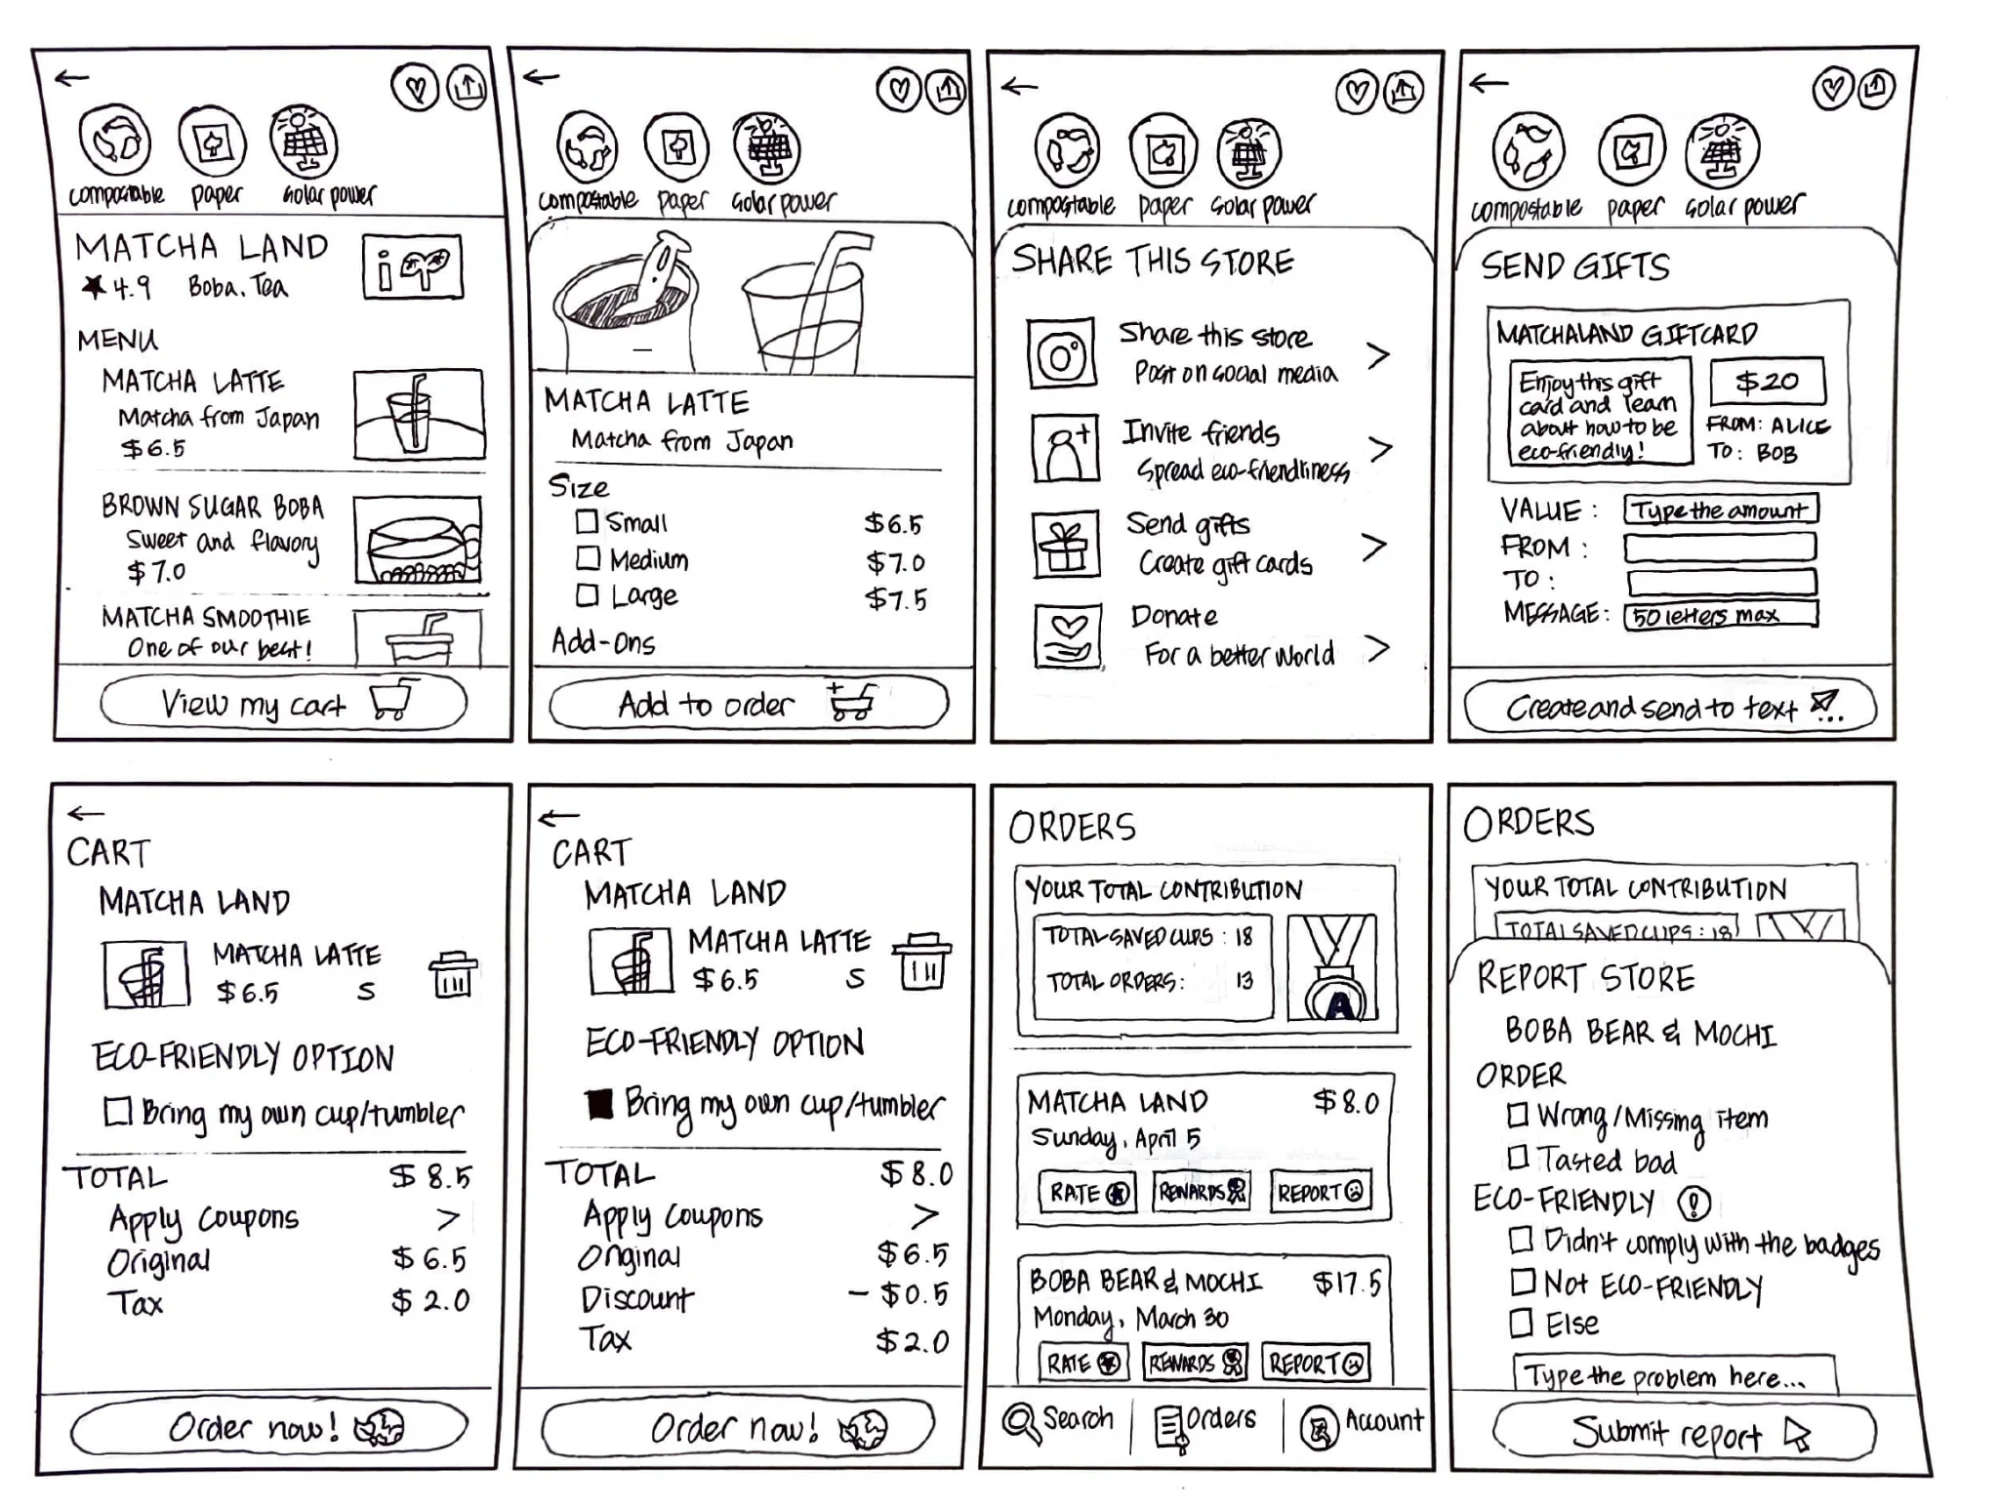 compostable paper solar power
MATCHA LAND
★ 4.9 Boba, Tea
MENU
MATCHA LATTE
Matcha from Japan
$6.5
BROWN SUGAR BOBA
Sweet and flavory
$7.0
MATCHA SMOOTHIE
One of our best!
View my cart
compostable paper solar power
MATCHA LATTE
Matcha from Japan
Size
Small $6.5
Medium $7.0
Large $7.5
Add-Ons
Add to order
compostable paper solar power
SHARE THIS STORE
Share this store
Post on social media
Invite friends
Spread eco-friendliness
Send gifts
Create gift cards
Donate
For a better world
compostable paper solar power
SEND GIFTS
MATCHALAND GIFTCARD
Enjoy this gift
card and learn
about how to be
eco-friendly!
$20
FROM: ALICE
TO: BOB
VALUE: Type the amount
FROM:
TO:
MESSAGE: 50 letters max
Create and send to text
CART
MATCHA LAND
MATCHA LATTE
$6.5 S
ECO-FRIENDLY OPTION
Bring my own cup/tumbler
TOTAL $8.5
Apply Coupons >
Original $6.5
Tax $2.0
Order now!
CART
MATCHA LAND
MATCHA LATTE
$6.5 S
ECO-FRIENDLY OPTION
Bring my own cup/tumbler
TOTAL $8.0
Apply Coupons >
Original $6.5
Discount - $0.5
Tax $2.0
Order now!
ORDERS
YOUR TOTAL CONTRIBUTION
TOTAL SAVED CUPS: 18
TOTAL ORDERS: 13
A
MATCHA LAND $8.0
Sunday, April 5
RATE REWARDS REPORT
BOBA BEAR & MOCHI $17.5
Monday, March 30
RATE REWARDS REPORT
Search Orders Account
ORDERS
YOUR TOTAL CONTRIBUTION
TOTAL SAVED CUPS: 18
REPORT STORE
BOBA BEAR & MOCHI
ORDER
Wrong/Missing item
Tasted bad
ECO-FRIENDLY !
Didn't comply with the badges
Not ECO-FRIENDLY
Else
Type the problem here...
Submit report